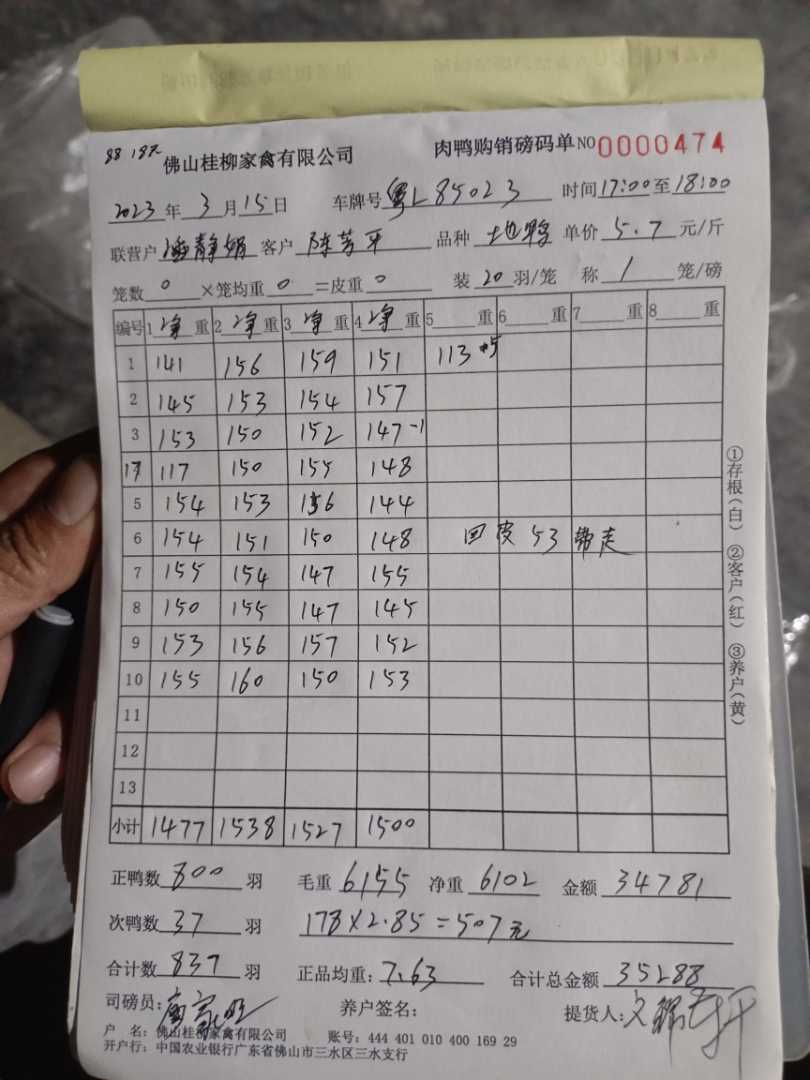 88 18元
佛山桂柳家禽有限公司 肉鸭购销磅码单 NO 0000474
2023年3月15日 车牌号 粤L85023 时间17:00至18:00
联营户 潘静娟 客户 陈芳平 品种 地鸭 单价 5.7 元/斤
笼数 0 ×笼均重 0 =皮重 0 装 20 羽/笼 称 1 笼/磅
编号 1 净 重 2 净 重 3 净 重 4 净 重 5 重 6 重 7 重 8 重
1 141 156 159 151 113 +5
2 145 153 154 157
3 153 150 152 147 -1
17 117 150 155 148
5 154 153 156 144
6 154 151 150 148 回皮 53 带走
7 155 154 147 155
8 150 155 147 145
9 153 156 157 152
10 155 160 150 153
11
12
13
小计 1477 1538 1527 1500
正鸭数 800 羽 毛重 6155 净重 6102 金额 34781
次鸭数 37 羽 178×2.85=507元
合计数 837 羽 正品均重: 7.63 合计总金额 35288
司磅员: 养户签名: 提货人:
户 名: 佛山桂柳家禽有限公司 账号: 444 401 010 400 169 29
开户行: 中国农业银行广东省佛山市三水区三水支行
①存根(白) ②客户(红) ③养户(黄)